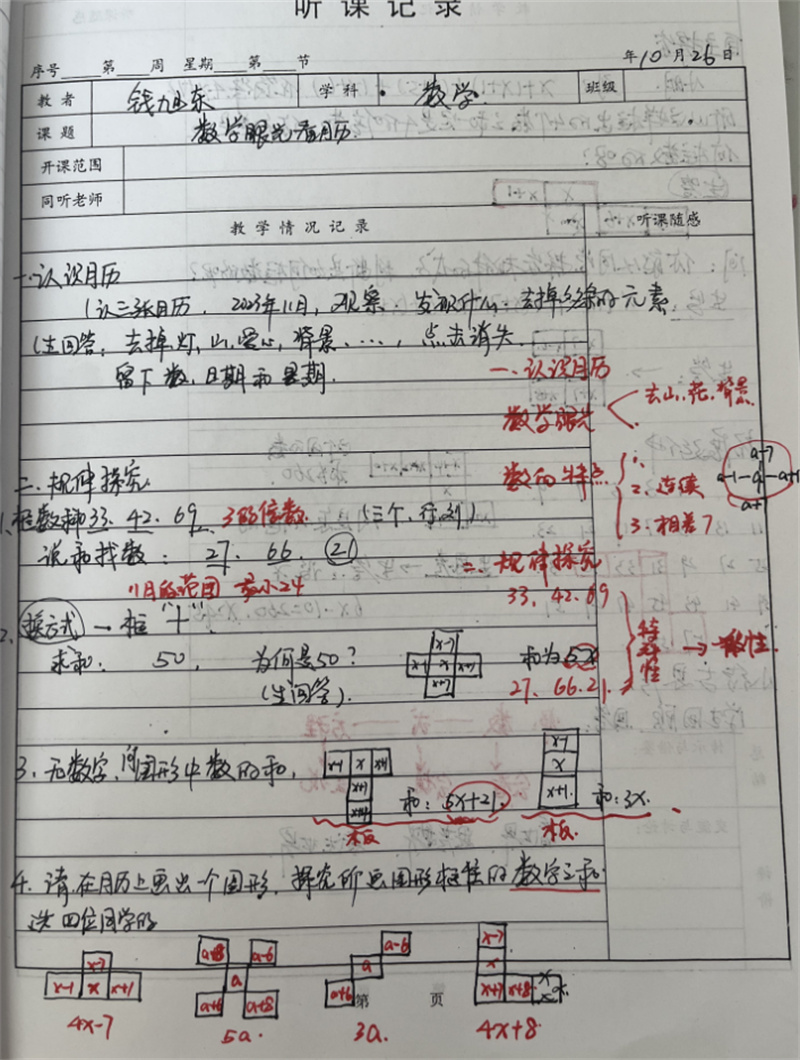 听课记录
序号 第 周 星期 第 节 年10月26日
教者 钱旭东 学科 数学 班级
课题 数学眼光看月历
开课范围
同听老师
教学情况记录 听课随感
一、认识月历
(认三张月历, 2023年11月, 观察, 发现什么, 去掉多余的元素
(生回答: 去掉灯, 山, 爱心, 背景、…, 点击消失.
留下数, 日期和星期.
一、认识月历
数学眼光 去山, 花, 背景.
数的特点 1.
2. 连续
3. 相差7
a-7
a-1-a-a+1
二、规律探究
1. 框数和33、42、69 3的倍数 (三个, 行, 列)
说和找数: 27、66、21
11月的范围 最小24
二、规律探究
33、42、69
2. 换方式 一框"十"
求和: 50, 为何是50?
(生回答).
x-7
x-1 x x+1
x+7
和为5x
27、66、21、
特殊性 → 一般性.
3、无数字, 问图形中数的和,
x-1 x x+1
x+7
x+14
和: 5x+21.
板
x-7
x
x+7
和: 3x.
板
4、请在月历上画出一个图形, 探究所画图形框住的数字之和
选四位同学的
x-7
x-1 x x+1
4x-7
a-8 a-6
a
a+6 a+8
5a.
a-6
a
a+6
3a.
x-7
x
x+7 x+8
4x+8
第 页